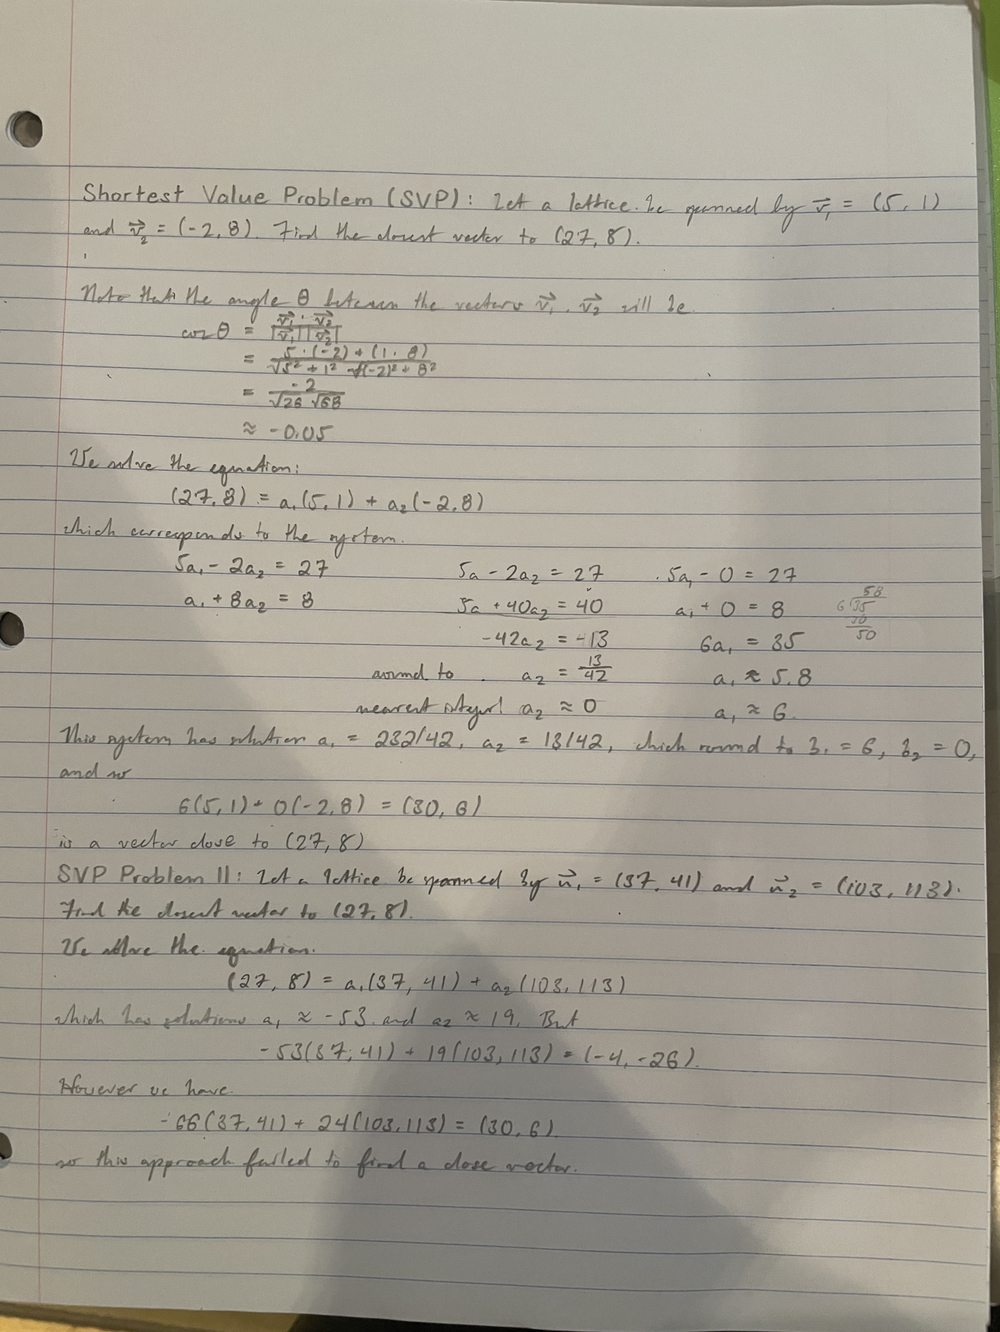 Shortest Value Problem (SVP): Let a lattice be spanned by v⃗₁ = (5, 1)
and v⃗₂ = (-2, 8). Find the closest vector to (27, 8).
Note that the angle θ between the vectors v⃗₁, v⃗₂ will be
cos θ = (v⃗₁ · v⃗₂) / (|v⃗₁| |v⃗₂|)
= (5 · (-2) + (1 · 8)) / (√5² + 1² √(-2)² + 8²)
= -2 / (√26 √68)
≈ -0.05
We solve the equation:
(27, 8) = a₁(5, 1) + a₂(-2, 8)
which corresponds to the system.
5a₁ - 2a₂ = 27 5a - 2a₂ = 27 5a₁ - 0 = 27
a₁ + 8a₂ = 8 5a + 40a₂ = 40 a₁ + 0 = 8
58
6 35
30
50
-42a₂ = -13 6a₁ = 35
round to a₂ = 13/42 a₁ ≈ 5.8
nearest integer! a₂ ≈ 0 a₁ ≈ 6
This system has solution a₁ = 232/42, a₂ = 13/42, which round to b₁ = 6, b₂ = 0,
and so
6(5, 1) + 0(-2, 8) = (30, 6)
is a vector close to (27, 8)
SVP Problem II: Let a lattice be spanned by u⃗₁ = (37, 41) and u⃗₂ = (103, 113).
Find the closest vector to (27, 8).
We solve the equation.
(27, 8) = a₁(37, 41) + a₂(103, 113)
which has solutions a₁ ≈ -53 and a₂ ≈ 19. But
-53(37, 41) + 19(103, 113) = (-4, -26).
However we have
-66(37, 41) + 24(103, 113) = (30, 6)
so this approach failed to find a close vector.